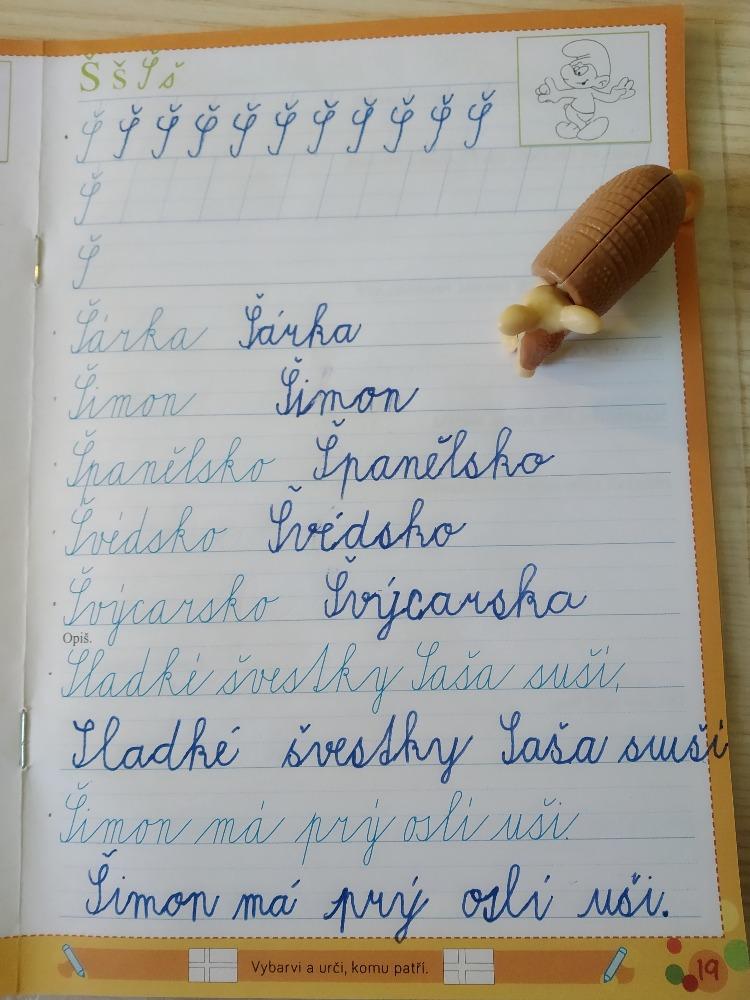 Š š Š š
Š Š Š Š Š Š Š Š Š Š Š
Š
Š
Šárka Šárka
Šimon Šimon
Španělsko Španělsko
Švédsko Švédsko
Švýcarsko Švýcarska
Opiš.
Sladké švestky Saša suší,
Sladké švestky Saša suuší
Šimon má prý oslí uši.
Šimon má prý oslí uši.
Vybarvi a urči, komu patří.
19